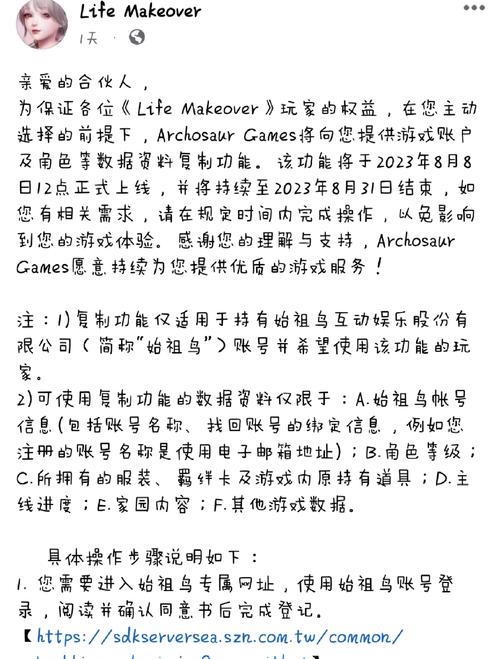 Life Makeover
1天 ·
亲爱的合伙人，
为保证各位《Life Makeover》玩家的权益，在您主动
选择的前提下，Archosaur Games将向您提供游戏账户
及角色等数据资料复制功能。该功能将于2023年8月8
日12点正式上线，并将持续至2023年8月31日结束，如
您有相关需求，请在规定时间内完成操作，以免影响
到您的游戏体验。感谢您的理解与支持，Archosaur
Games愿意持续为您提供优质的游戏服务！
注：1)复制功能仅适用于持有始祖鸟互动娱乐股份有
限公司（简称“始祖鸟”）账号并希望使用该功能的玩
家。
2)可使用复制功能的数据资料仅限于：A.始祖鸟帐号
信息(包括账号名称、找回账号的绑定信息，例如您
注册的账号名称是使用电子邮箱地址)；B.角色等级；
C.所拥有的服装、羁绊卡及游戏内原持有道具；D.主
线进度；E.家园内容；F.其他游戏数据。
具体操作步骤说明如下：
1. 您需要进入始祖鸟专属网址，使用始祖鸟账号登
录，阅读并确认同意书后完成登记。
【https://sdkserversea.szn.com.tw/common/